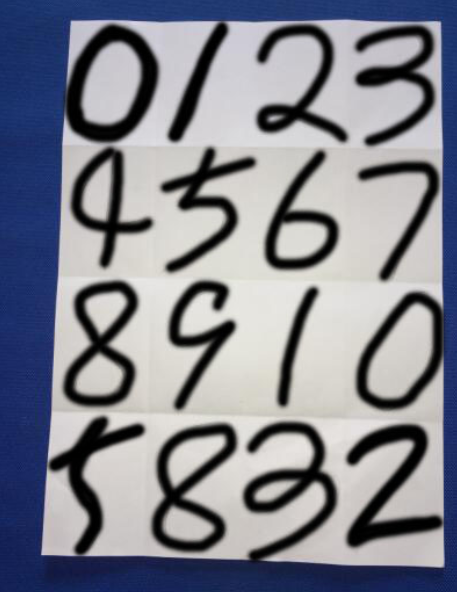 0 1 2 3
4 5 6 7
8 9 1 0
5 8 3 2